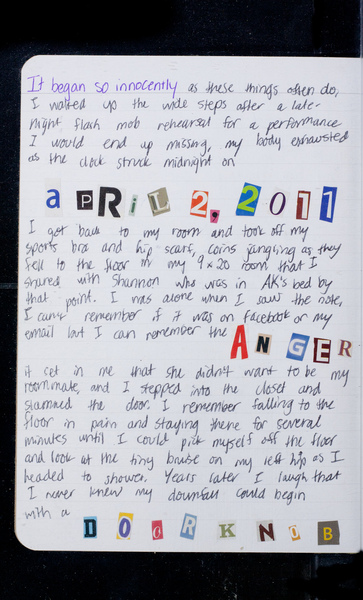 It began so innocently as these things often do,
I walked up the wide steps after a late-
night flash mob rehearsal for a performance
I would end up missing, my body exhausted
as the clock struck midnight on
aPRiL 2, 2011
I got back to my room and took off my
sports bra and hip scarf, coins jangling as they
fell to the floor in my 9x20 room that I
shared with Shannon who was in AK's bed by
that point. I was alone when I saw the note,
I can't remember if it was on facebook or my
email but I can remember the ANGER
it set in me that she didn't want to be my
roommate, and I stepped into the closet and
slammed the door. I remember falling to the
floor in pain and staying there for several
minutes until I could pick myself off the floor
and look at the tiny bruise on my left hip as I
headed to shower. Years later I laugh that
I never knew my downfall could begin
with a
DOORKNOB